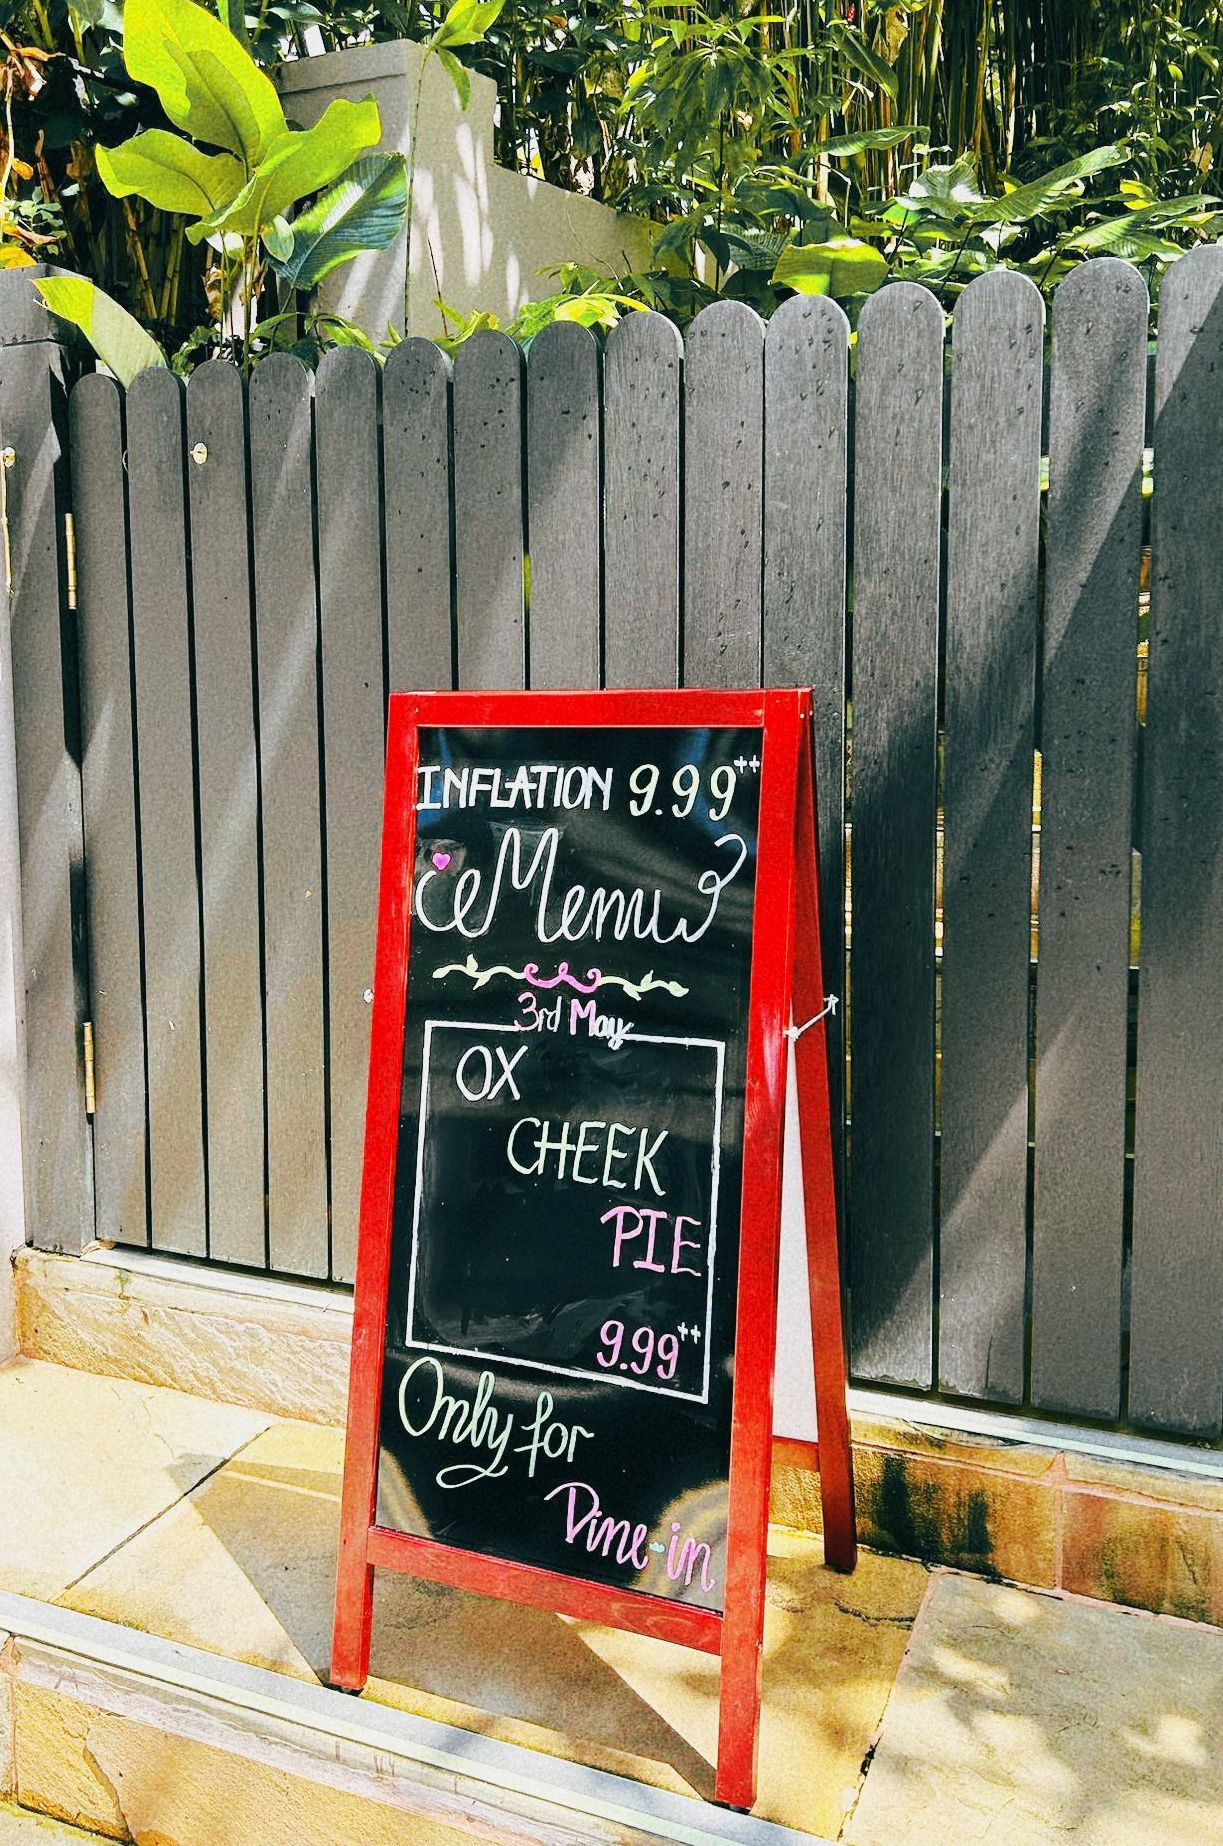 INFLATION 9.99++
Menu
3rd May
OX
CHEEK
PIE
9.99++
Only for
Dine-in